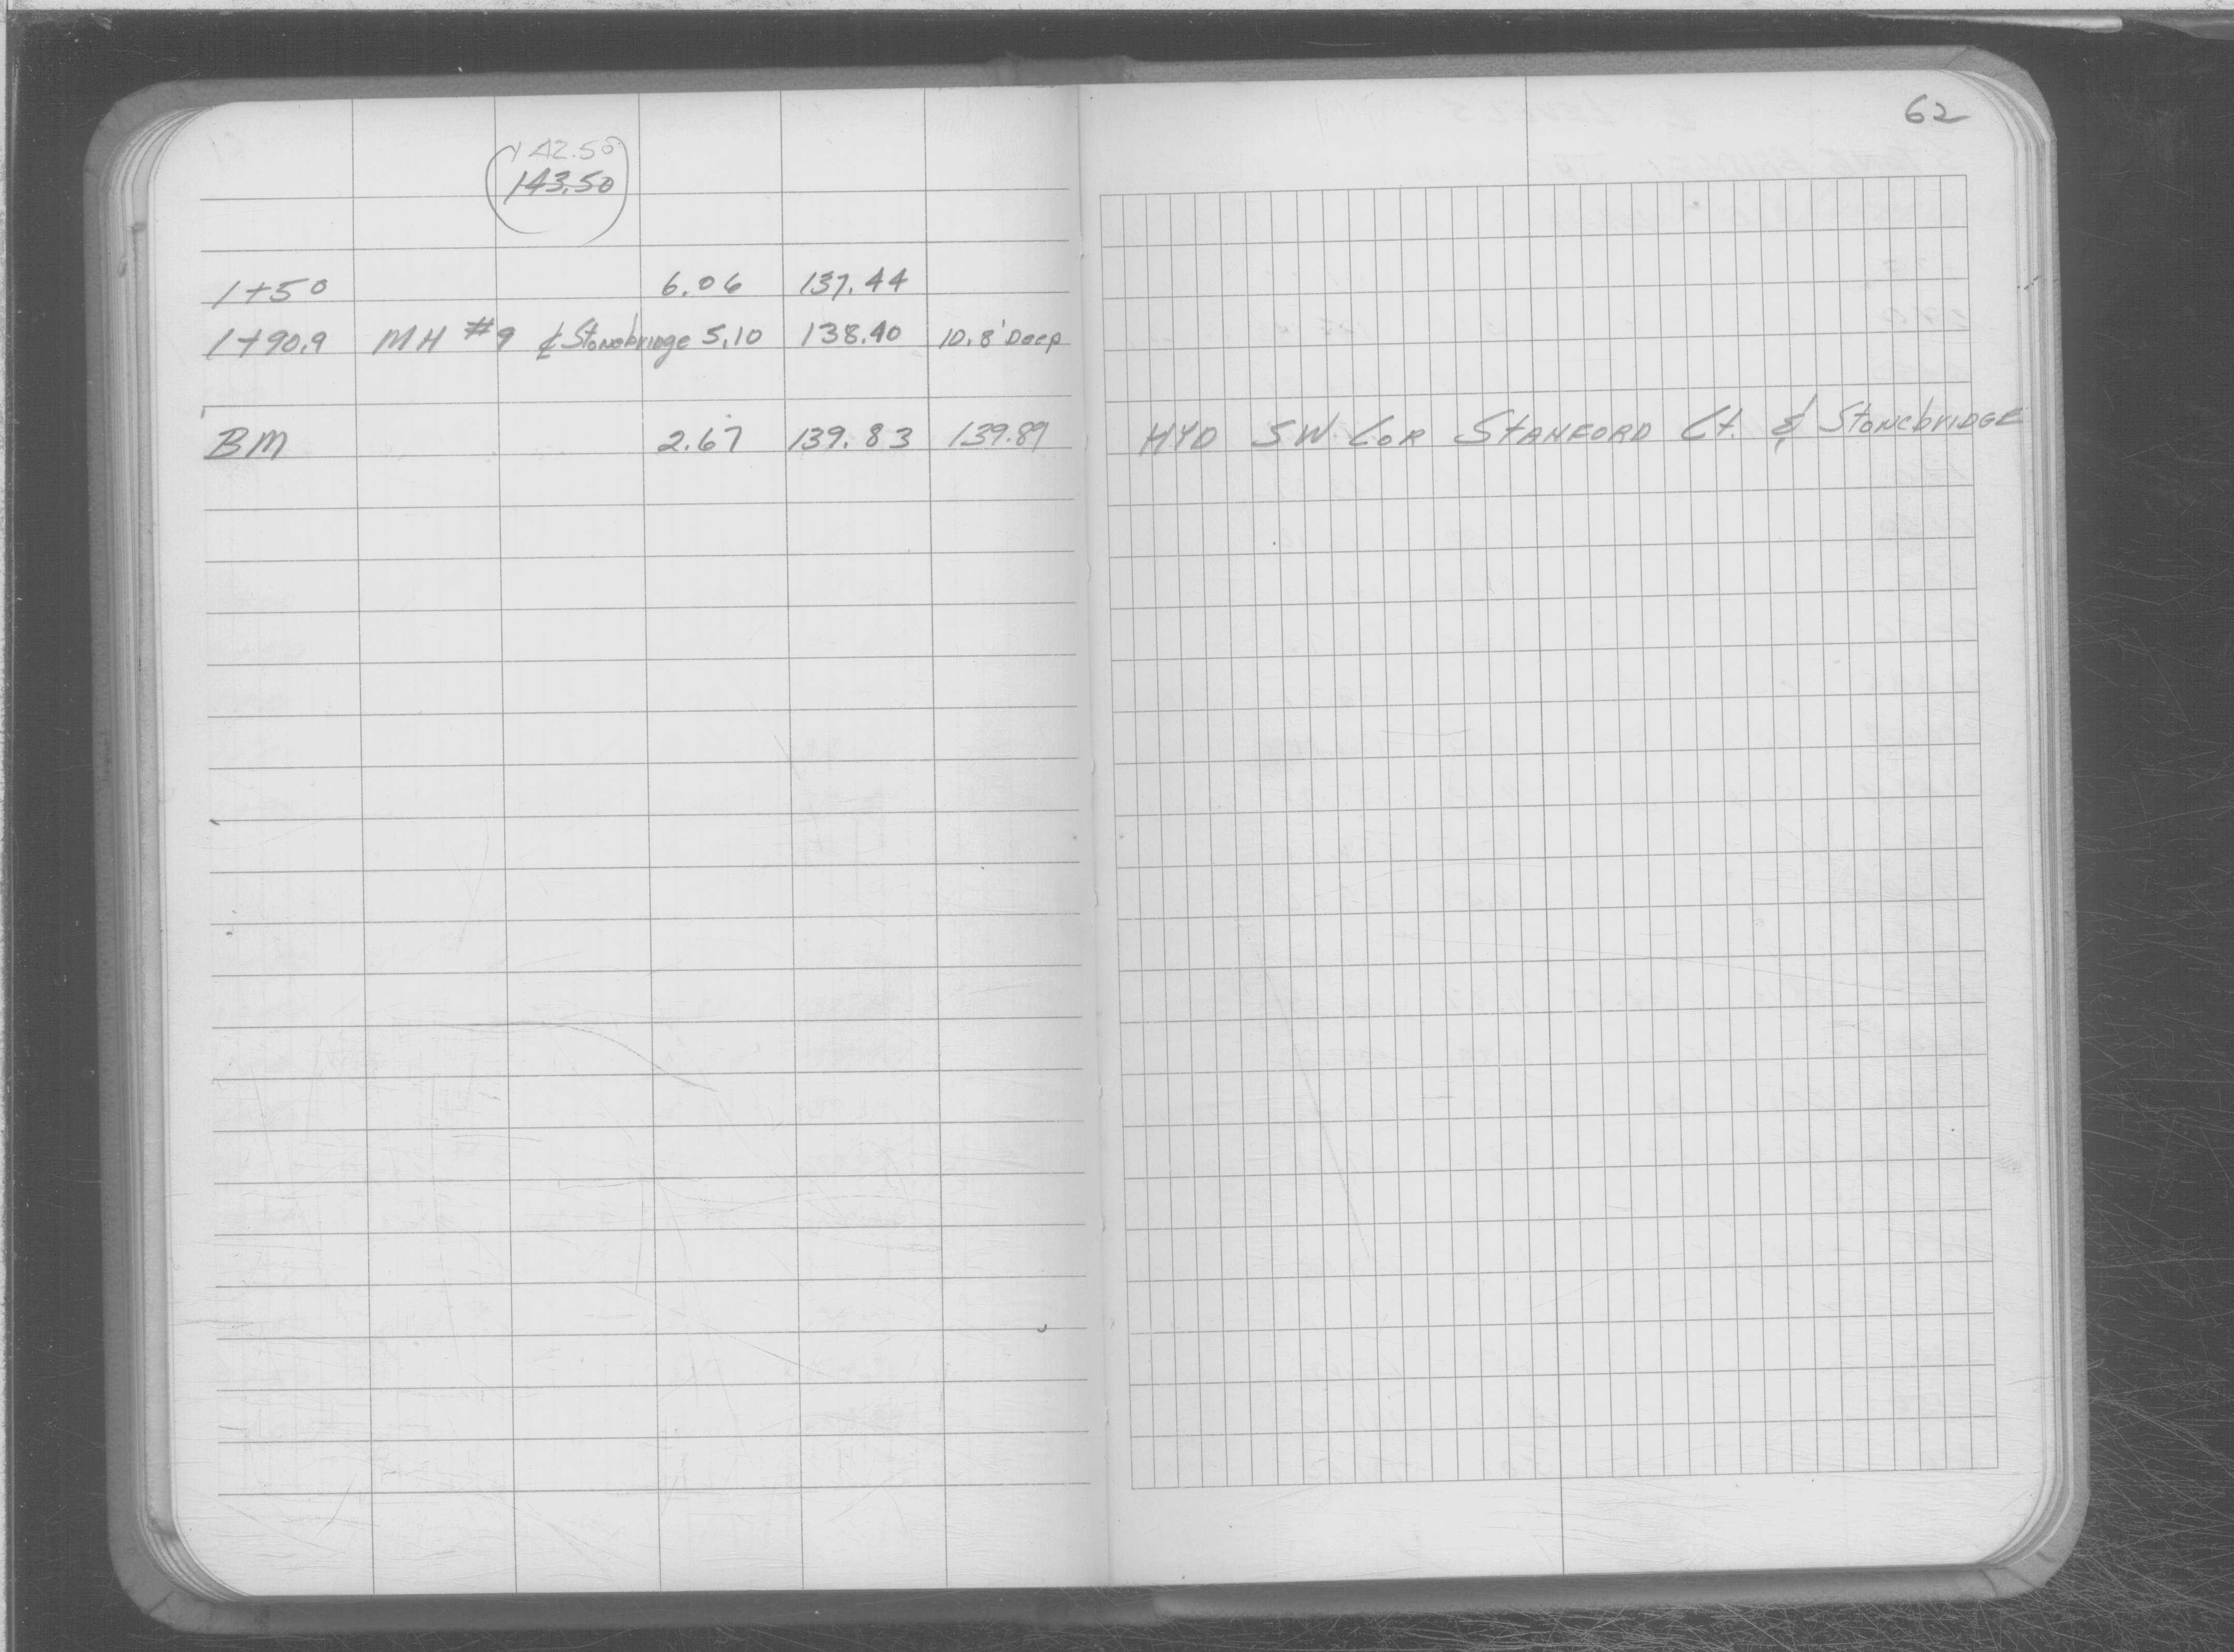 62
142.50
143.50
1+50 6.06 137.44
1+90.9 MH #9 ₵ Stonebridge 5.10 138.40 10.8' Deep
BM 2.67 139.83 139.89 HYD SW COR STANFORD Ct. & StoneBRIDGE